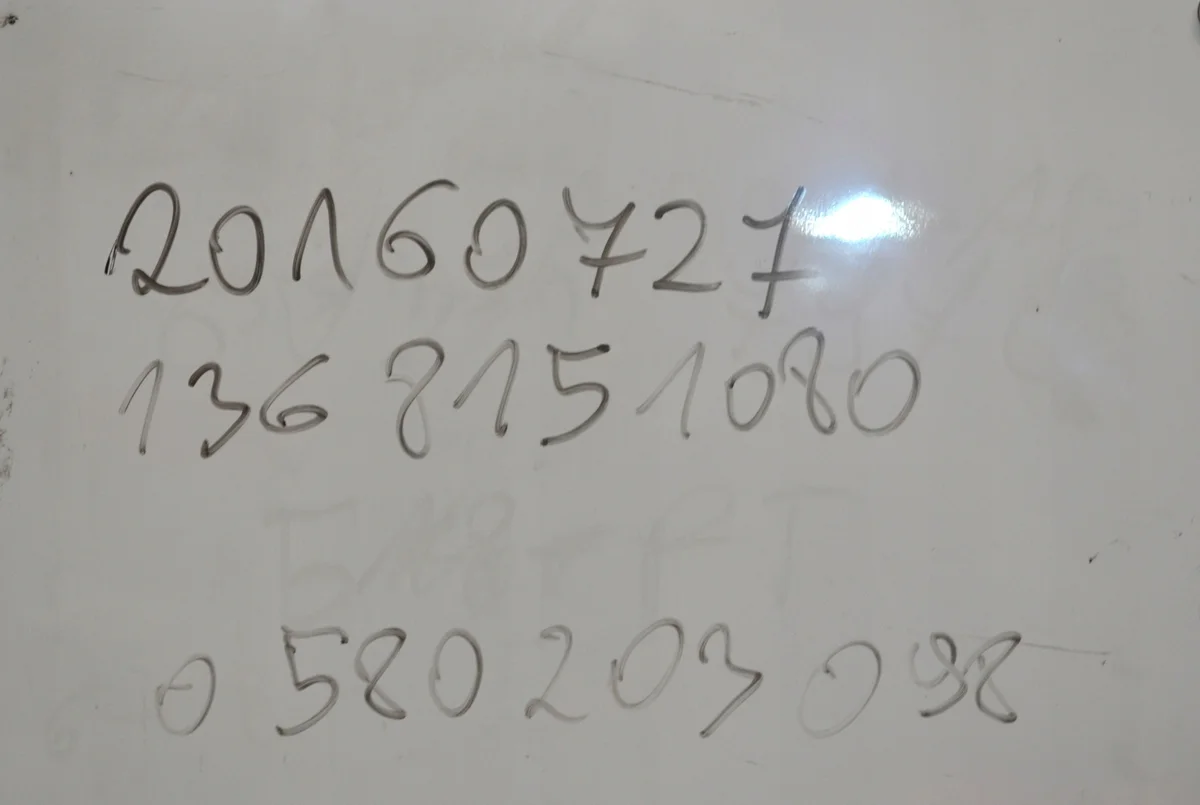 20160727
136 8151080
0 580 203 098